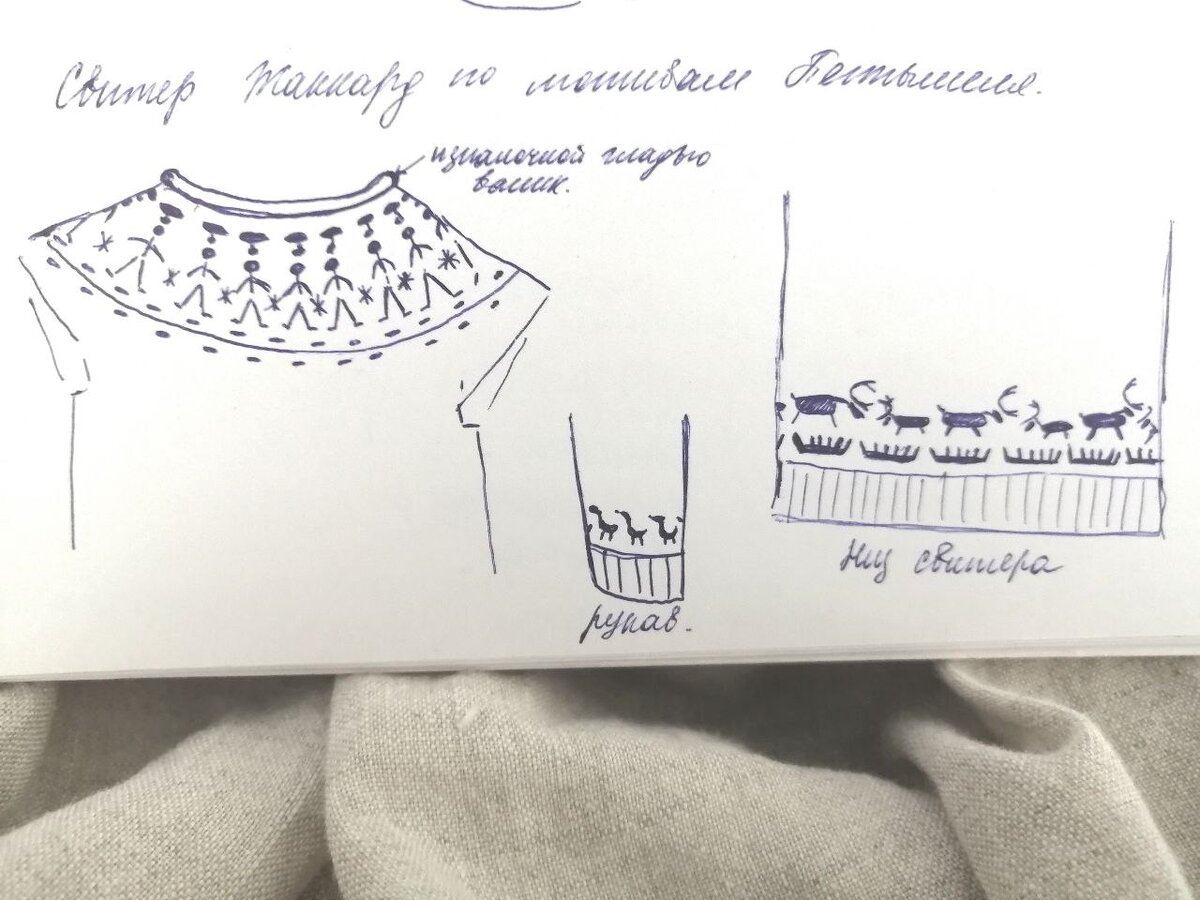 Свитер Жаккард по мотивам Пегтымеля.
изнаночной гладью
валик.
рукав.
Низ свитера